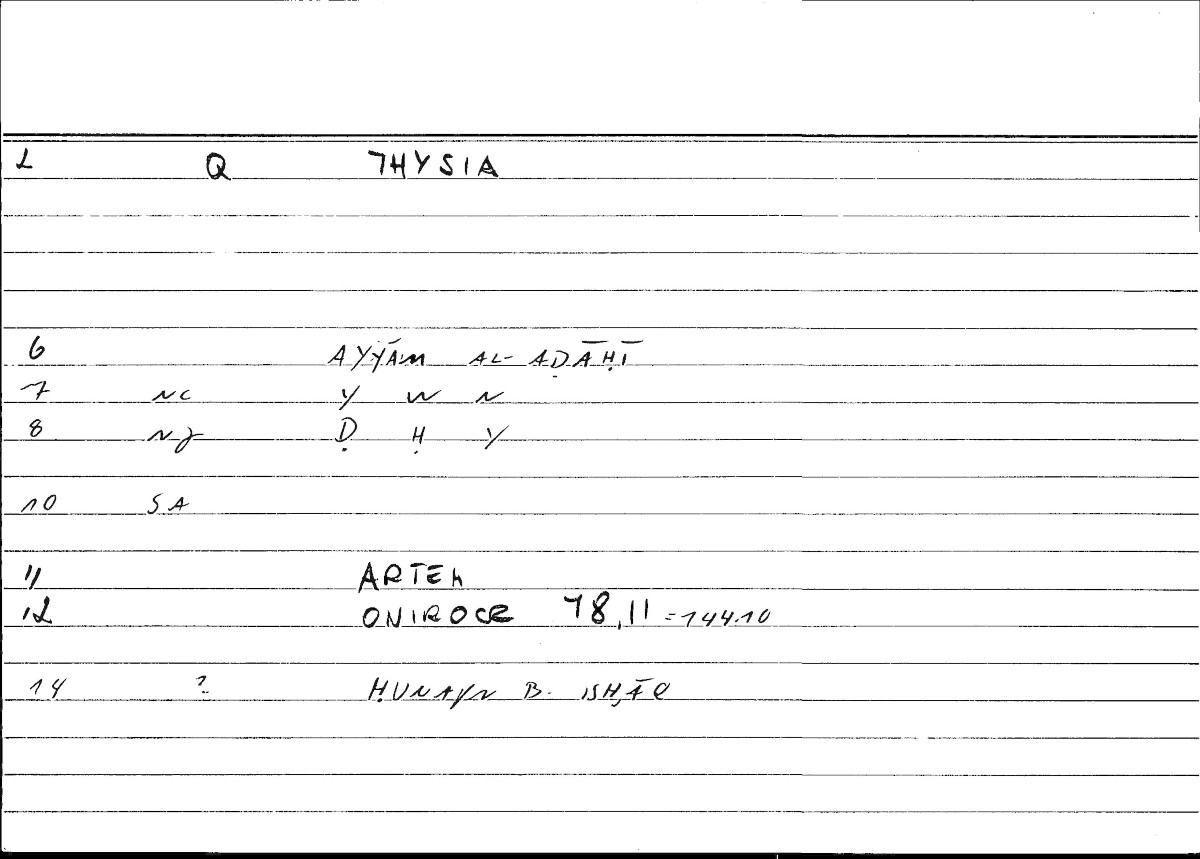 2 Q THYSIA
6 AYYĀM AL-AḌĀḤĪ
7 NC Y W N
8 NJ Ḍ Ḥ Y
10 SA
11 ARTEM
12 ONIROCR 78,11 = 144.10
14 ? ḤUNAYN B. ISḤĀQ